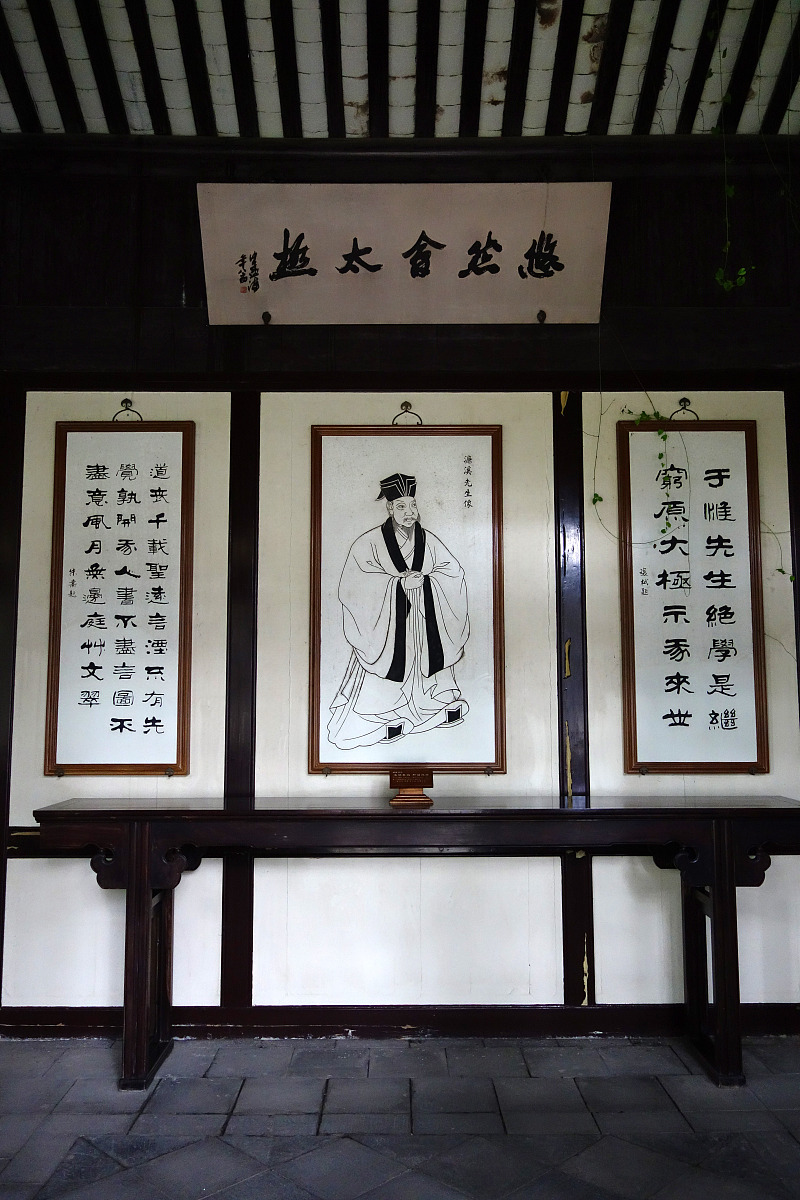 悠然會太極
于惟先生絕學是繼
窮原太極示我來世
張栻題
濂溪先生像
道喪千載聖遠言湮不有先
覺孰開我人書不盡言圖不
盡意風月無邊庭艸交翠
朱熹題